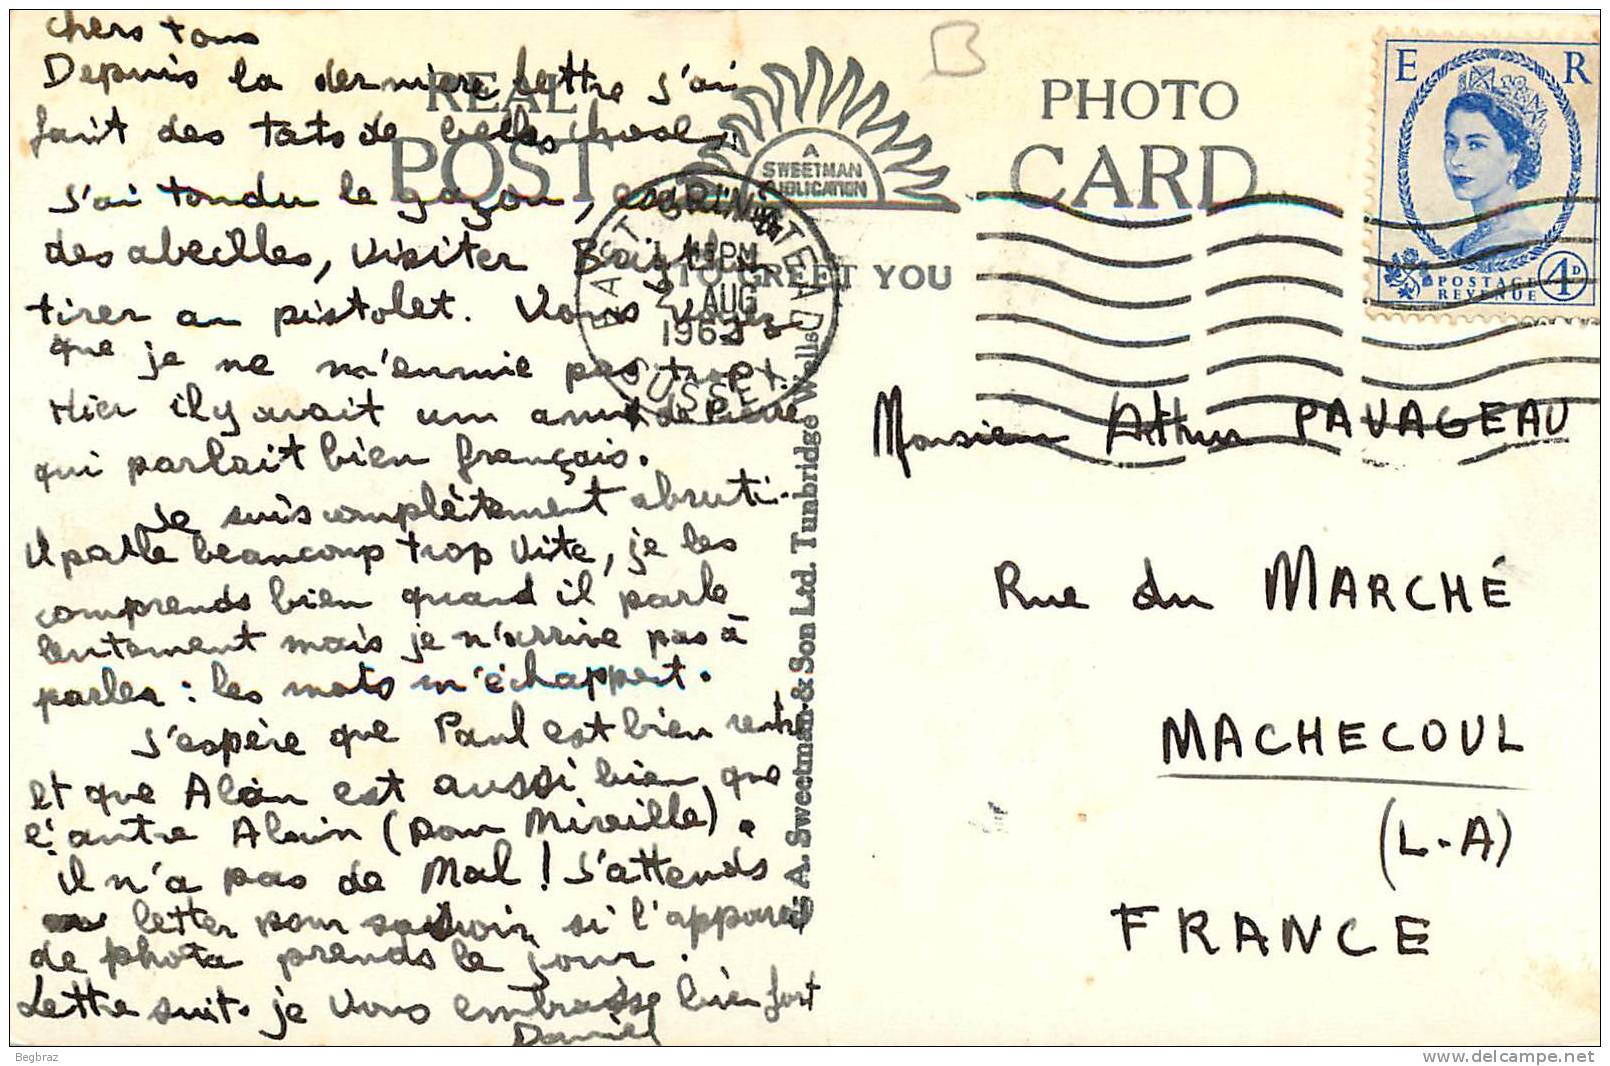 chers tous
Depuis la dernière lettre j'ai
fait des tats de belles choses,
j'ai tondu le gazon,
des abeilles, visiter
tirer au pistolet. Vous voyez
que je ne m'ennuie pas trop!
Hier il y avait un ami de Pierre
qui parlait bien français.
Je suis complètement abruti.
il parle beaucoup trop vite, je les
comprends bien quand il parle
lentement mais je n'arrive pas à
parler : les mots m'échappent.
J'espère que Paul est bien rentré
et que Alain est aussi bien que
l'autre Alain (pour Mireille).
il n'a pas de Mal ! J'attends
letter pour savoir si l'appareil
de photo prends le jour.
Lettre suit. je vous embrasse bien fort
Daniel
REAL PHOTO
POST CARD
A
SWEETMAN
PUBLICATION
TO GREET YOU
EAST GRINSTEAD
PM
2 AUG
1963
SUSSEX
A. Sweetman & Son Ltd. Tunbridge Wells
B
E R
POSTAGE
REVENUE
4D
Monsieur Arthur PAVAGEAU
Rue du MARCHÉ
MACHECOUL
(L-A)
FRANCE
Begbraz
www.delcampe.net